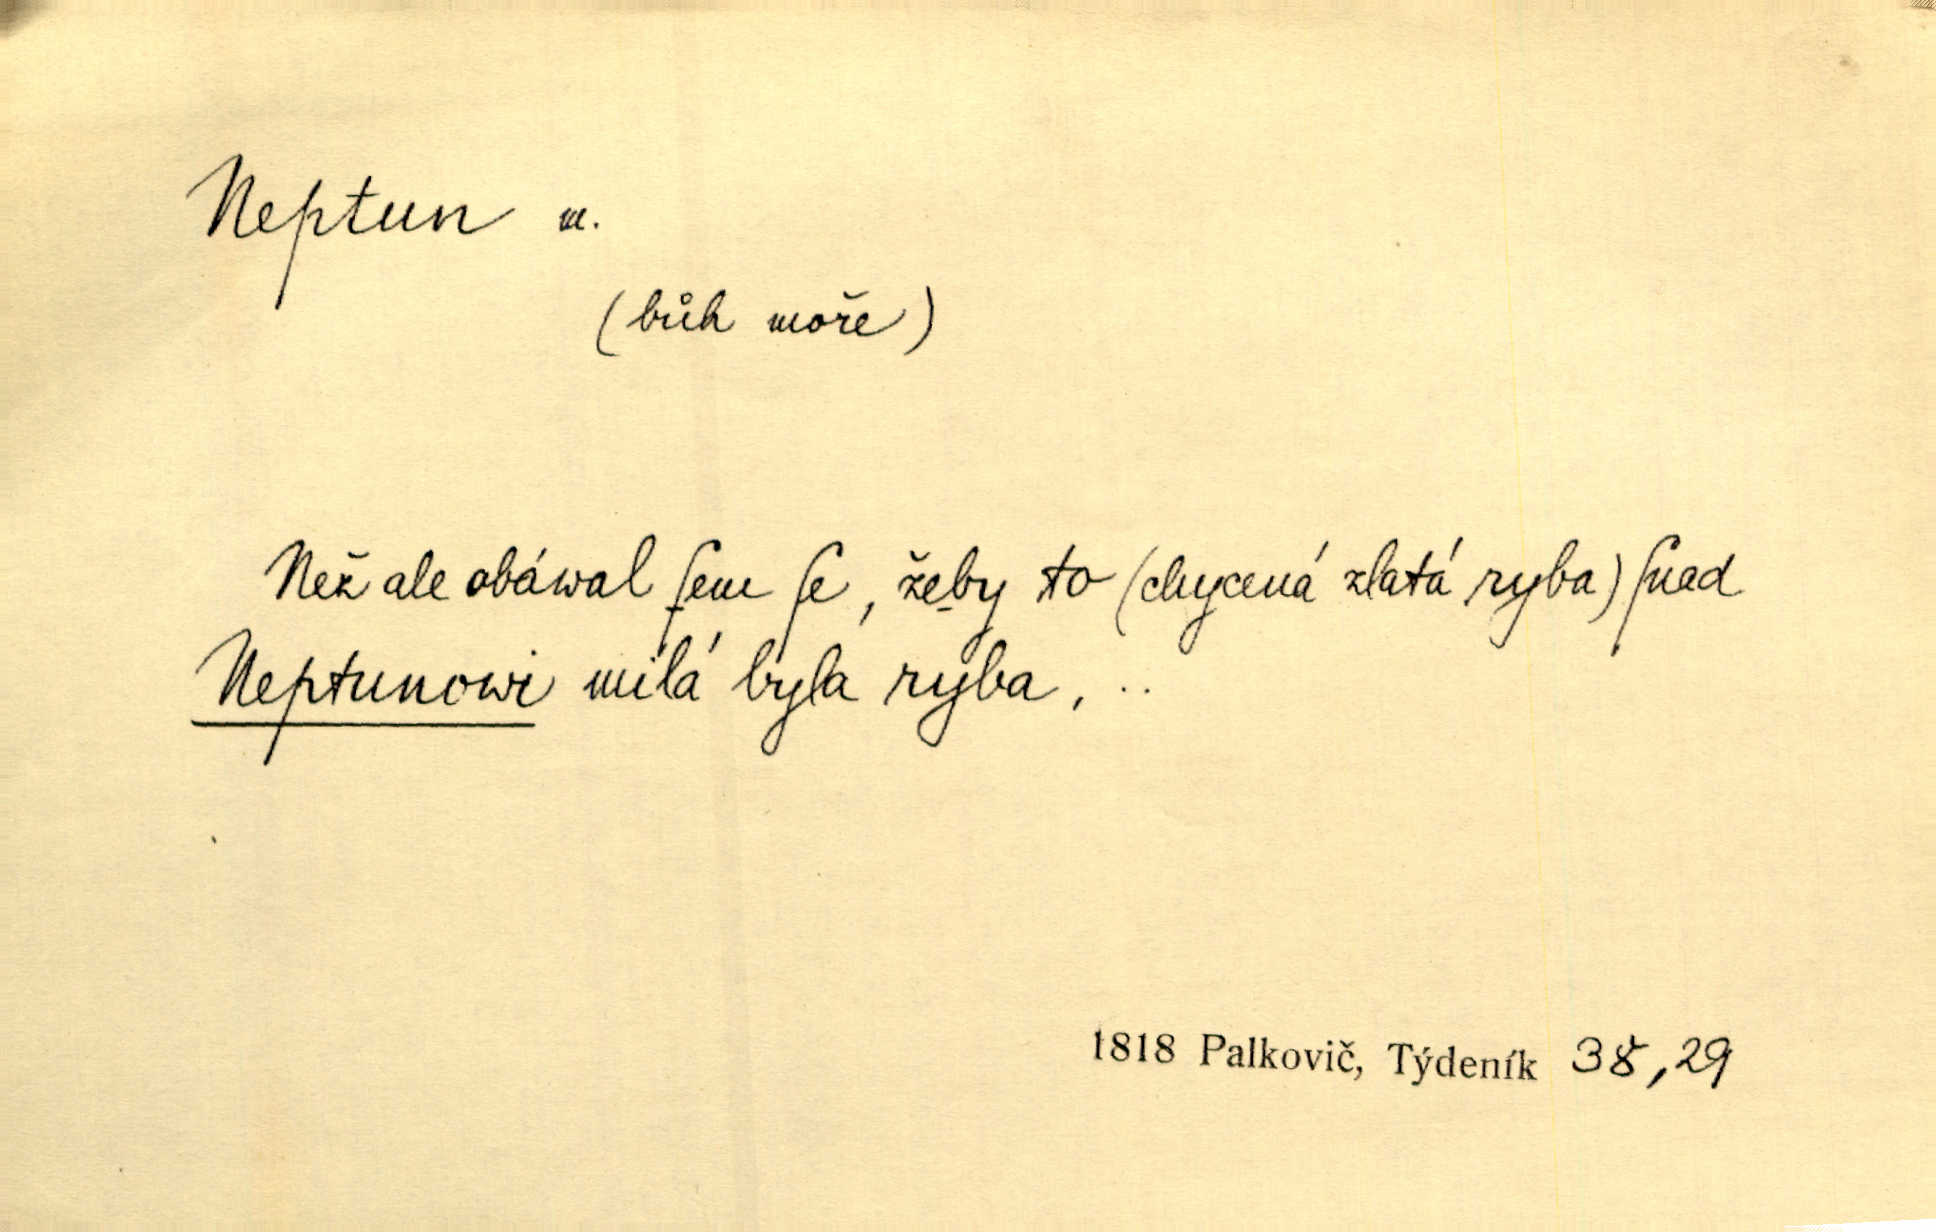 Neptun m.
(bůh moře)
Než ale obáwal ſem ſe, žeby to (chycená zlatá ryba) ſnad
Neptunowi milá byla ryba, ..
1818 Palkovič, Týdeník 38,29